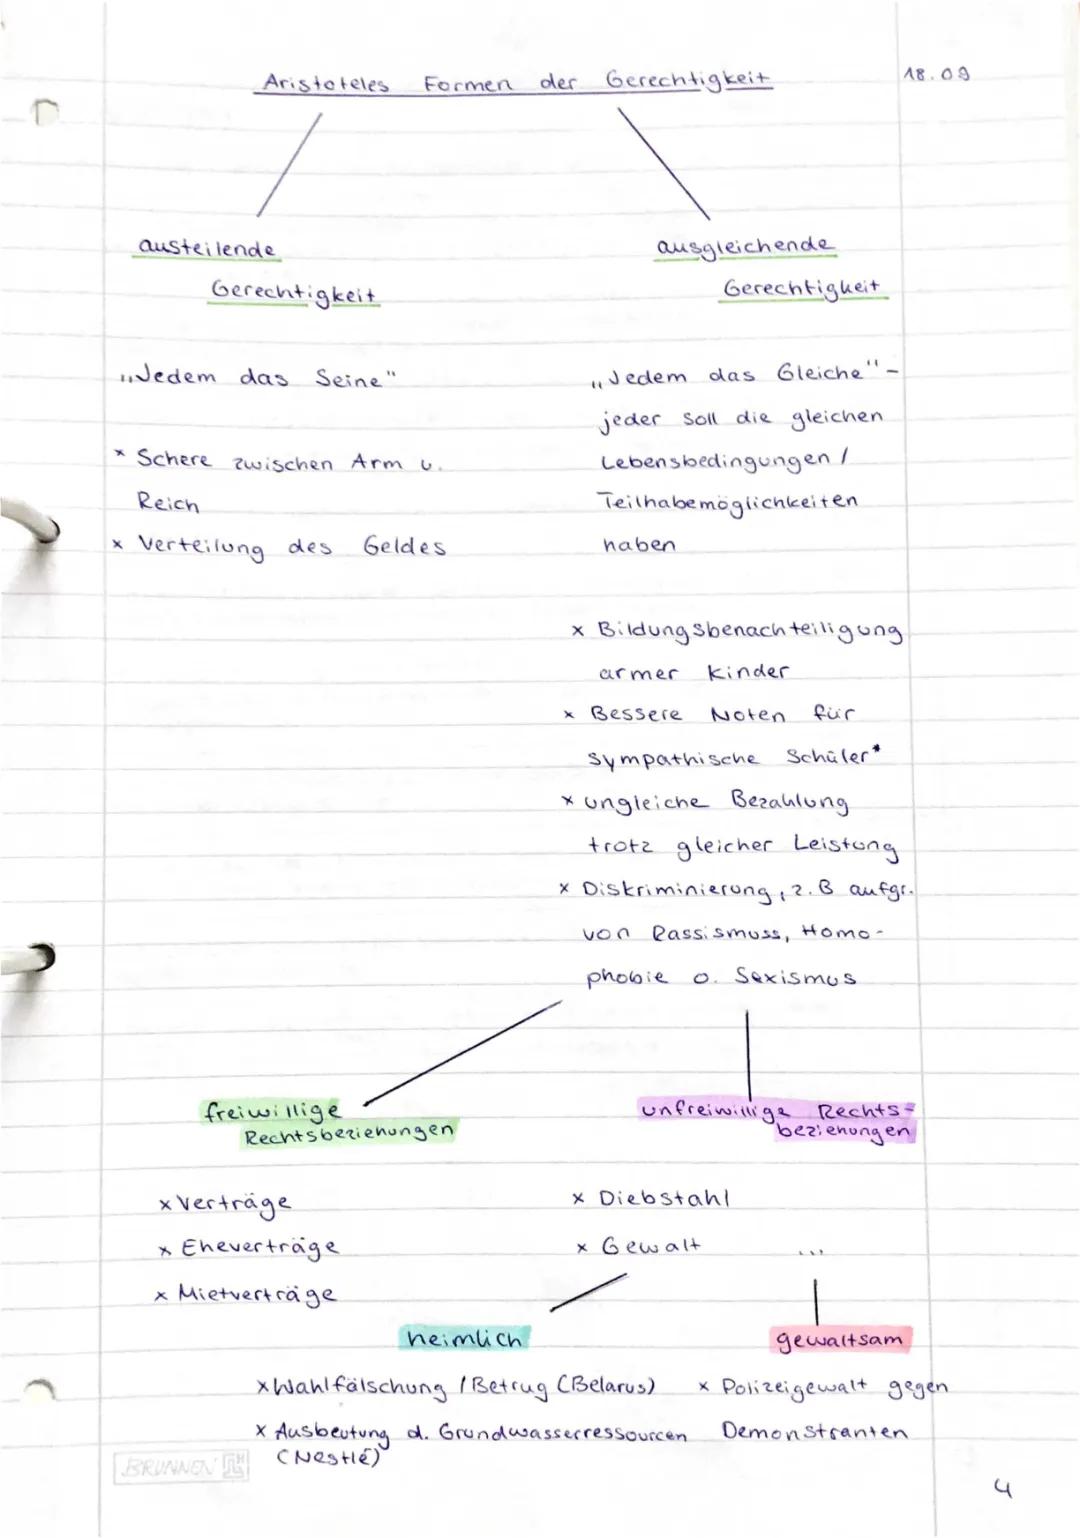 Aristoteles Formen der Gerechtigkeit
18.09
austeilende
Gerechtigkeit
„Jedem das Seine"
x Schere zwischen Arm u.
Reich
x Verteilung des Geldes
ausgleichende
Gerechtigkeit
„Jedem das Gleiche" -
jeder soll die gleichen
Lebensbedingungen /
Teilhabemöglichkeiten
haben
x Bildungsbenachteiligung
armer Kinder
x Bessere Noten für
sympathische Schüler*
x ungleiche Bezahlung
trotz gleicher Leistung
x Diskriminierung, z.B aufgr.
von Rassismuss, Homo-
phobie o. Sexismus
freiwillige
Rechtsbeziehungen
x Verträge
x Eheverträge
x Mietverträge
unfreiwillige Rechts-
beziehungen
x Diebstahl
x Gewalt ...
heimlich
x Wahlfälschung / Betrug (Belarus)
x Ausbeutung d. Grundwasserressourcen
(Nestlé)
gewaltsam
x Polizeigewalt gegen
Demonstranten
BRUNNEN
4